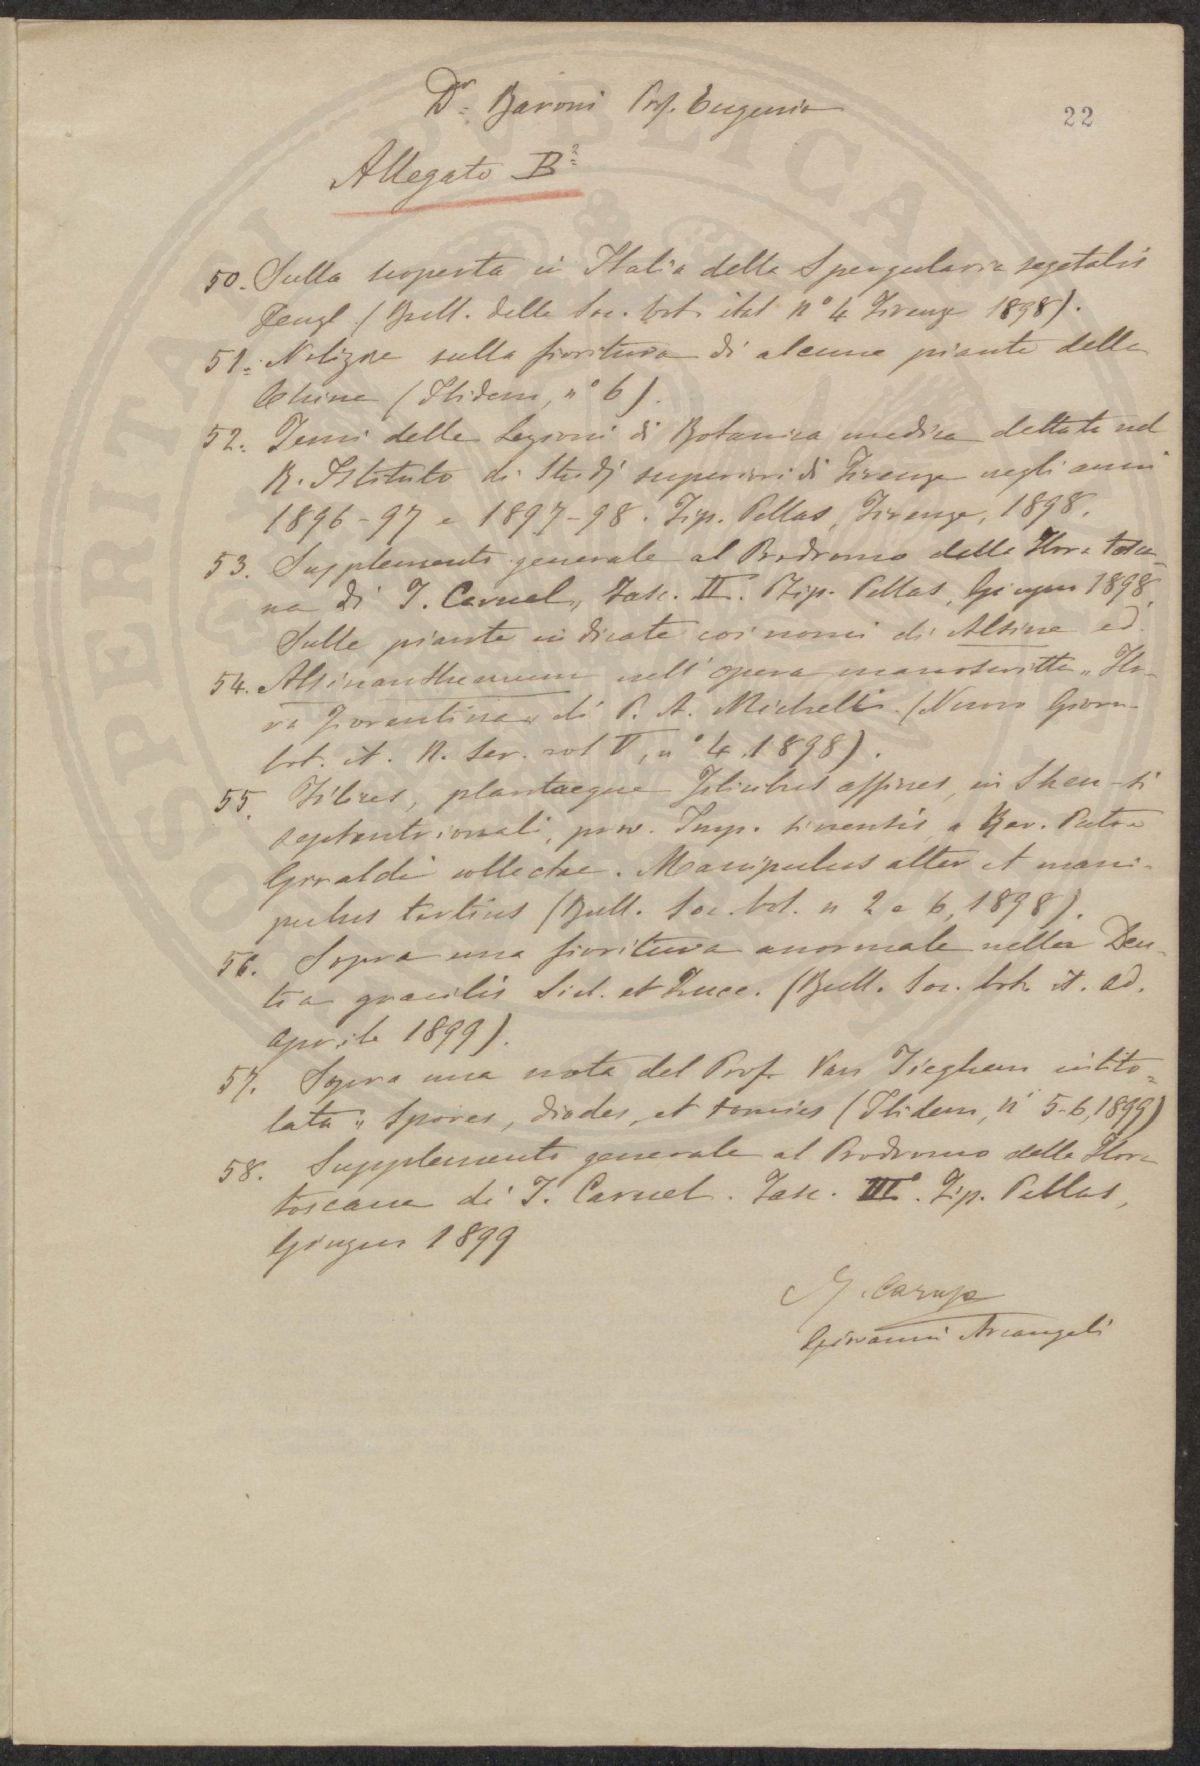 Dr. Baroni Prof. Eugenio
22
Allegato B²
50. Sulla scoperta in Italia della Spergularia segetalis
Fenzl (Bull. della Soc. bot. ital. n° 4 Firenze 1898).
51. Notizie sulla fioritura di alcune piante della
China (Ibidem, n° 6).
52. Temi delle Lezioni di Botanica medica dettate nel
R. Istituto di Studj superiori di Firenze negli anni
1896-97 e 1897-98. Tip. Pellas, Firenze, 1898.
53. Supplemento generale al Prodromo della Flora tosca-
na di T. Caruel, Fasc. II. Tip. Pellas, Giugno 1898
Sulle piante indicate coi nomi di Alsine ed
54. Alsinanthemum nell'opera manoscritta „Flo-
ra Fiorentina„ di P. A. Micheli. (Nuovo Giorn.
bot. it. N. Ser. vol V, n° 4. 1898).
55. Filices, plantaeque Filicibus affines, in Shen-si
septentrionali, prov. Imp. sinensis, a Rev. Patre
Giraldi collectae. Manipulus alter et mani-
pulus tertius (Bull. Soc. bot. n 2 e 6, 1898).
56. Sopra una fioritura anormale nella Deu-
tzia gracilis Sieb. et Zucc. (Bull. Soc. bot. it. ad.
aprile 1899).
57. Sopra una nota del Prof. Van Tieghem intito-
lata „ Spores, diodes, et tomies (Ibidem, n' 5-6, 1899)
58. Supplemento generale al Prodromo della Flora
toscana di T. Caruel. Fasc. III°. Tip. Pellas,
Giugno 1899
Giovanni Arcangeli
SPERITAS PUBLICA